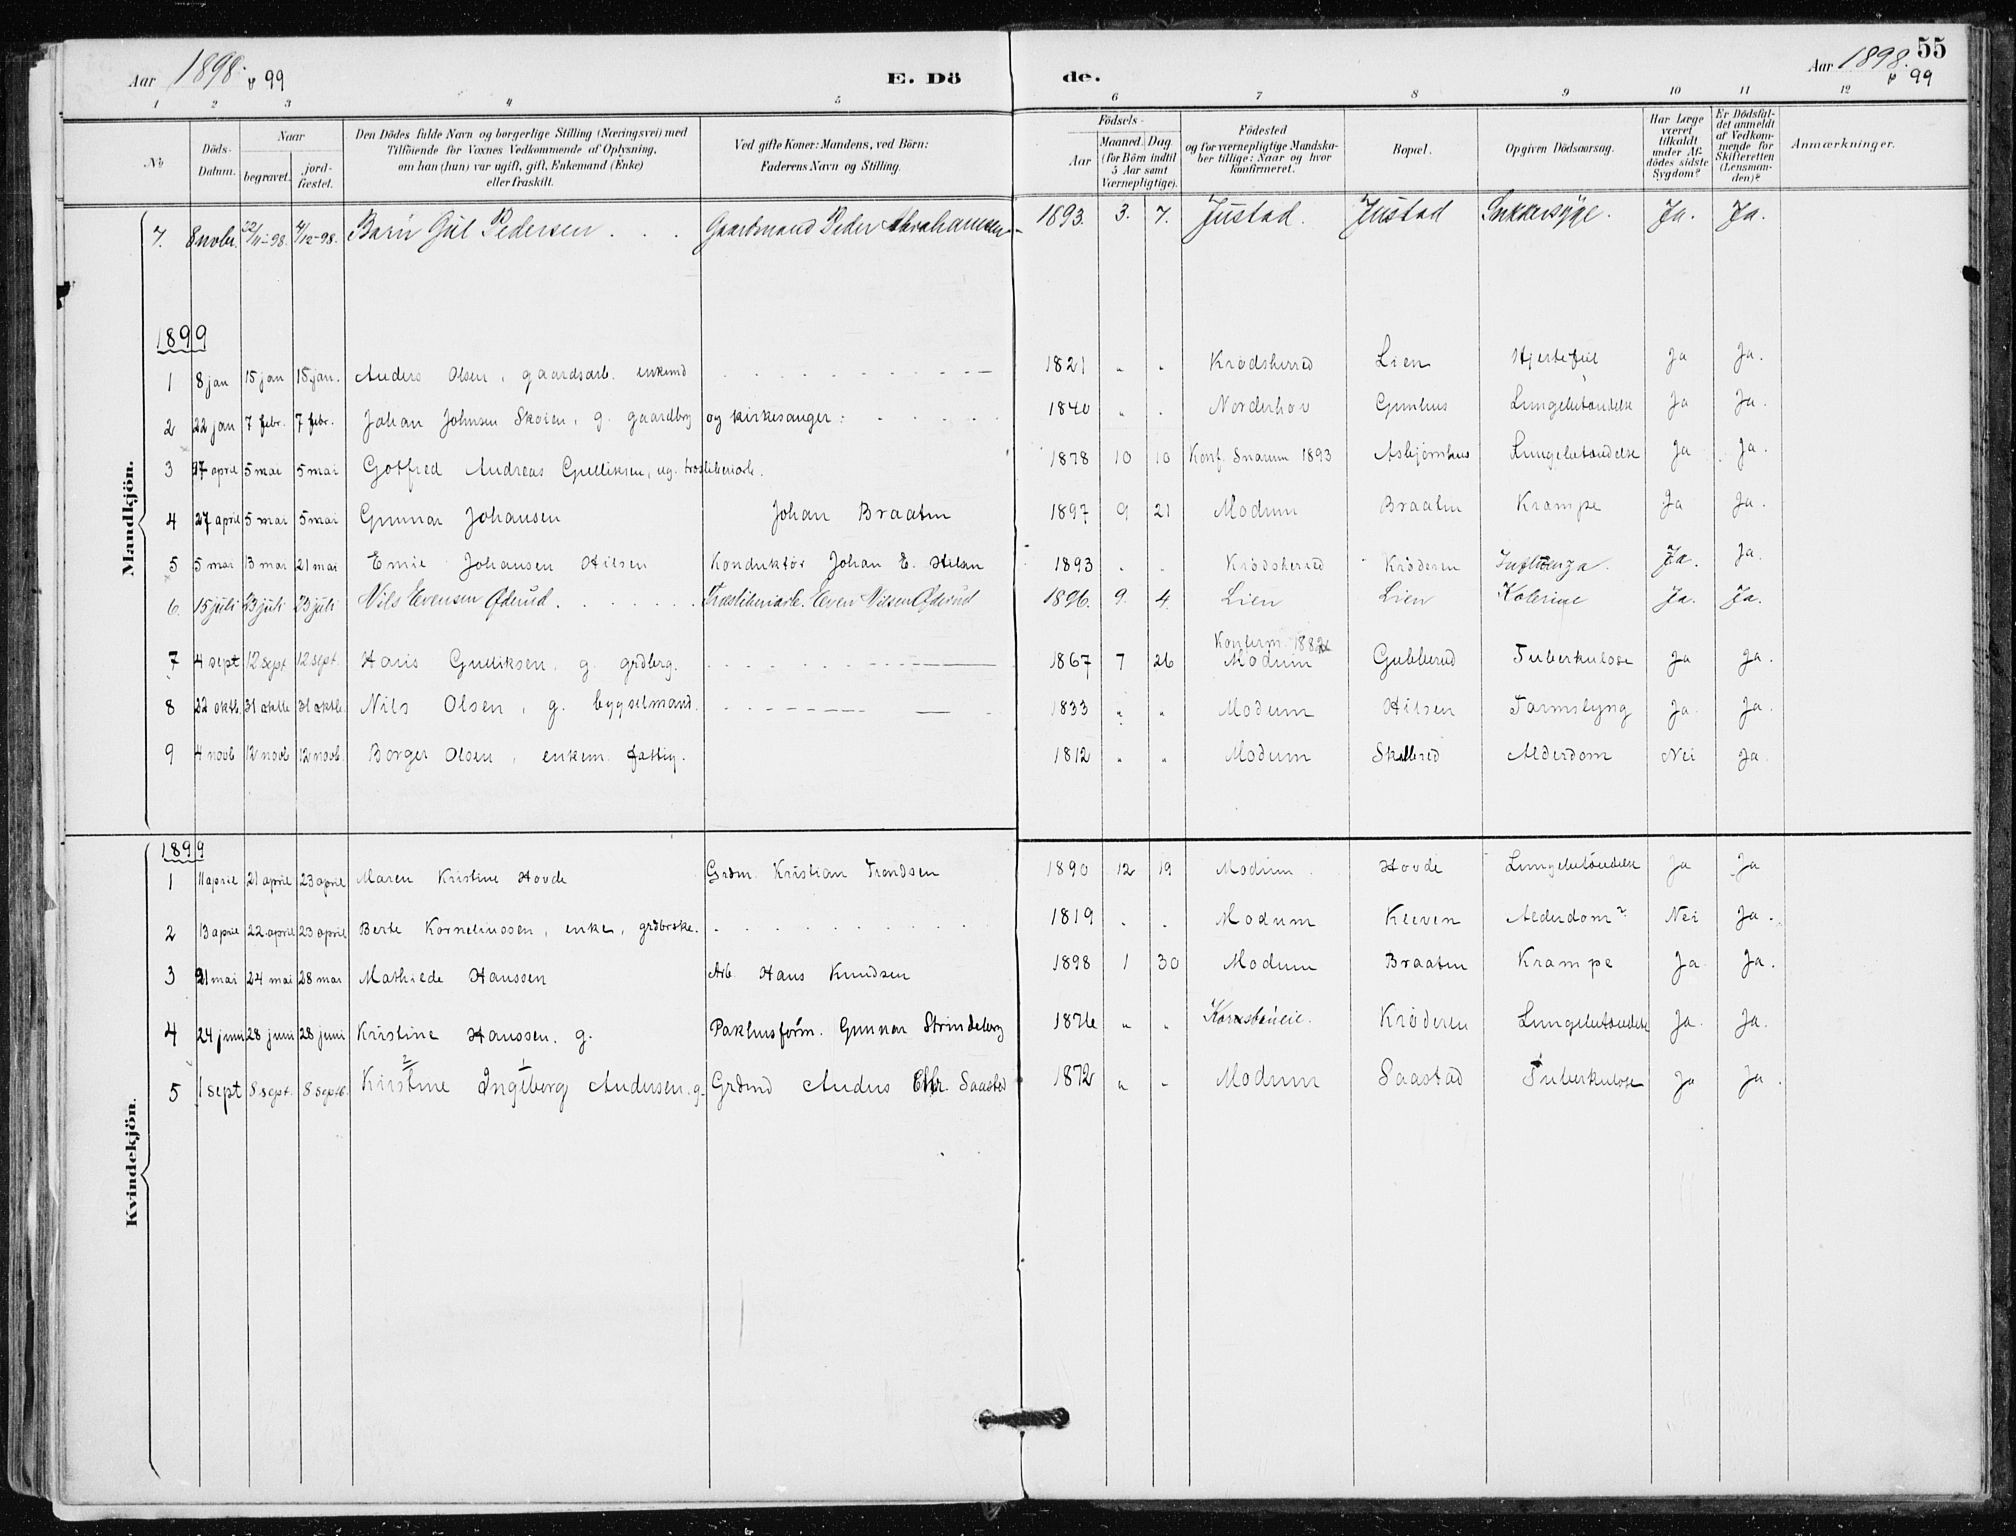 Aar 1898. & 99 E. Dö de. Aar 1898. & 99 55
1 2 3 4 5 6 7 8 9 10 11 12
No
Döds-Datum.
Naar
begravet.
jord-fæstet.
Den Dödes fulde Navn og borgerlige Stilling (Næringsvei) med
Tilföiende for Voxnes Vedkommende af Oplysning,
om han (hun) var ugift, gift, Enkemand (Enke)
eller fraskilt.
Ved gifte Koner: Mandens, ved Börn:
Faderens Navn og Stilling.
Födsels-
Aar
Maaned. Dag.
(for Börn indtil
5 Aar samt
Værnepligtige).
Födested
og for værnepligtige Mandska-
ber tillige: Naar og hvor
konfirmeret.
Bopæl.
Opgiven Dödsaarsag.
Har Læge
været
tilkaldt
under Af-
dödes sidste
Sygdom?
Er Dödsfal-
det anmeldt
af Vedkom-
mende for
Skifteretten
(Lensman-
den)?
Anmærkninger.
Mandkjön.
7. 8 novbr. 22/11-98. 4/12-98. Barn Gul Pedersen . . . Gaardmand Peder Abrahamsen 1893. 3. 7. Justad. Justad Sukkersyge. Ja. Ja.
1899
1 8 jan 15 jan 15 jan. Anders Olsen, gaardsarb. enkemd 1821 " " Krødsherred Lien Hjertefeil Ja Ja.
2 22 jan 7 febr. 7 febr. Johan Johnsen Skoien, g. gaardbrg og kirkesanger: 1840 " " Norderhov Gunhus Lungebetændelse Ja Ja.
3 27 april 5 mai 5 mai Gotfred Andreas Gulliksen, ug. træsliberiarb. 1878 10 10 Konf. Snarum 1893 Asbjørnhus Lungebetændelse Ja Ja.
4 27 april 5 mai 5 mai Gunnar Johansen Johan Braaten 1897 9 21 Modum Braaten Krampe Ja Ja.
5 5 mai 13 mai 21 mai Emil Johansen Hilsen Konduktør Johan E. Hilsen 1893 " " Krødsherred Krøderen Influenza. Ja. Ja.
6. 15 juli 23 juli 23 juli Nils Evensen Øderud Træsliberiarb. Even Nilsen Øderud 1896. 9. 4. Lien Lien Kolerine Ja. Ja.
7 4 sept 12 sept. 12 sept. Hans Gulliksen, g. grdbrg. 1867 7 26 Konfirm. 1882 Modum Gubberud Tuberkulose Ja Ja.
8 22 oktb. 31 oktb 31 oktb. Nils Olsen, g. bygselmand. 1833 " " Modum Hilsen Tarmslyng Ja. Ja.
9 4 novb 12 novb 12 novb. Borger Olsen, enkem. fattig. 1812 " " Modum Skallerud Alderdom Nei Ja.
Kvindekjön.
1899
1 11 april 21 april 23 april Maren Kristine Hovde Grdm. Kristian Trondsen 1890 12 19 Modum. Hovde Lungebetændelse Ja Ja
2 13 april 22 april 23 april Berte Kornelinssen, enke, grdbrske. 1819 " " Modum Kleven Alderdom? Nei Ja.
3 21 mai 24 mai 28 mai Mathilde Hanssen Arb Hans Knudsen 1898 1 30 Modum Braaten Krampe Ja Ja.
4 24 juni 28 juni 28 juni Kristine Hanssen. g. Pakhusform. Gunnar Strindeberg 1876 " " Krøderen Lungebetændelse Ja. Ja.
5 1 sept 8 sept. 8 septb. Kristine Ingeborg Andersen, g. Grdmd Anders Chr. Saastad 1872 " " Modum Saastad Tuberkulose Ja Ja.